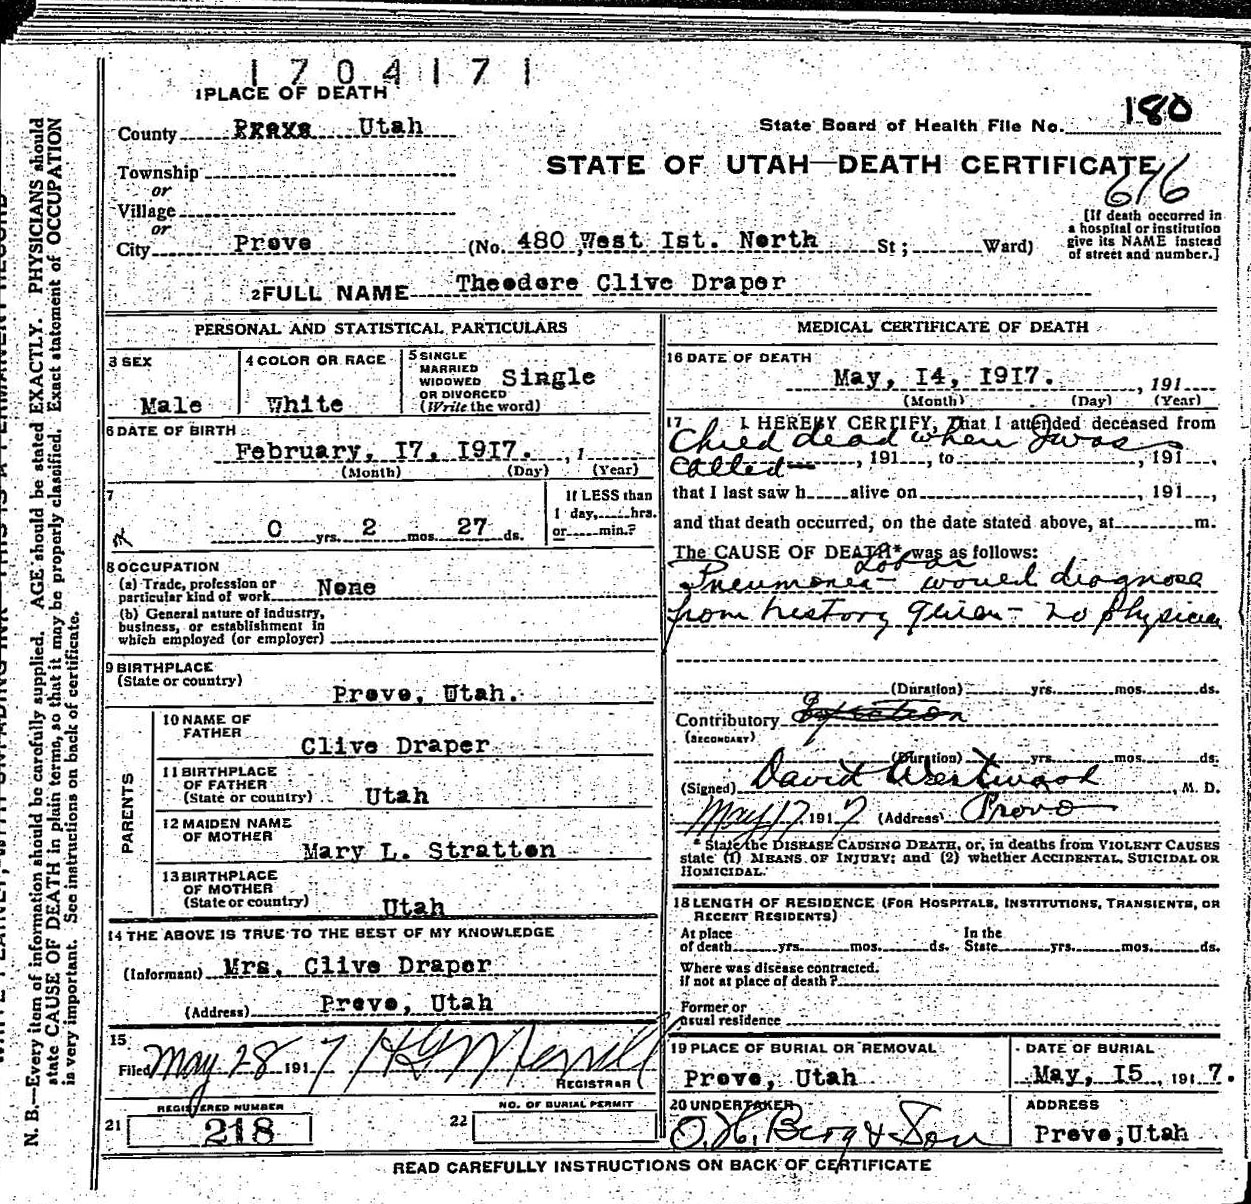 1704171
1 PLACE OF DEATH
County Utah
State Board of Health File No. 180
STATE OF UTAH—DEATH CERTIFICATE
676
Township
or
Village
or
City Provo (No. 480 West Ist. North St; Ward)
[If death occurred in
a hospital or institution
give its NAME instead
of street and number.]
2 FULL NAME Theodore Clive Draper
PERSONAL AND STATISTICAL PARTICULARS
3 SEX
Male
4 COLOR OR RACE
White
5 SINGLE
MARRIED
WIDOWED
OR DIVORCED
(Write the word)
Single
6 DATE OF BIRTH
February, 17, 1917. , 1
(Month) (Day) (Year)
7
0 yrs. 2 mos. 27 ds.
If LESS than
1 day, hrs.
or min.?
8 OCCUPATION
(a) Trade, profession or
particular kind of work None
(b) General nature of industry,
business, or establishment in
which employed (or employer)
9 BIRTHPLACE
(State or country)
Provo, Utah.
PARENTS
10 NAME OF
FATHER
Clive Draper
11 BIRTHPLACE
OF FATHER
(State or country) Utah
12 MAIDEN NAME
OF MOTHER
Mary L. Stratton
13 BIRTHPLACE
OF MOTHER
(State or country) Utah
14 THE ABOVE IS TRUE TO THE BEST OF MY KNOWLEDGE
(Informant) Mrs. Clive Draper
(Address) Provo, Utah
15
Filed May 28 1917 H G Merrill
REGISTRAR
REGISTERED NUMBER
21 218
NO. OF BURIAL PERMIT
22
MEDICAL CERTIFICATE OF DEATH
16 DATE OF DEATH
May, 14, 1917. , 191
(Month) (Day) (Year)
17 I HEREBY CERTIFY, That I attended deceased from
Child dead when I was
called , 191 , to , 191 ,
that I last saw h alive on , 191 ,
and that death occurred, on the date stated above, at m.
The CAUSE OF DEATH* was as follows:
Lobar
Pneumonia - would diagnose
from history given - no physician
(Duration) yrs. mos. ds.
Contributory
(SECONDARY)
(Duration) yrs. mos. ds.
(Signed) David Westwood , M. D.
May 17 1917 (Address) Provo
* State the DISEASE CAUSING DEATH, or, in deaths from VIOLENT CAUSES
state (1) MEANS OF INJURY; and (2) whether ACCIDENTAL, SUICIDAL OR
HOMICIDAL.
18 LENGTH OF RESIDENCE (FOR HOSPITALS, INSTITUTIONS, TRANSIENTS, OR
RECENT RESIDENTS)
At place
of death yrs. mos. ds.
In the
State yrs. mos. ds.
Where was disease contracted.
if not at place of death?
Former or
usual residence
19 PLACE OF BURIAL OR REMOVAL
Provo, Utah
DATE OF BURIAL
May, 15, 1917.
20 UNDERTAKER
O. H. Berg & Son
ADDRESS
Provo, Utah
READ CAREFULLY INSTRUCTIONS ON BACK OF CERTIFICATE
N. B.—Every item of information should be carefully supplied. AGE should be stated EXACTLY. PHYSICIANS should
state CAUSE OF DEATH in plain terms, so that it may be properly classified. Exact statement of OCCUPATION
is very important. See instructions on back of certificate.